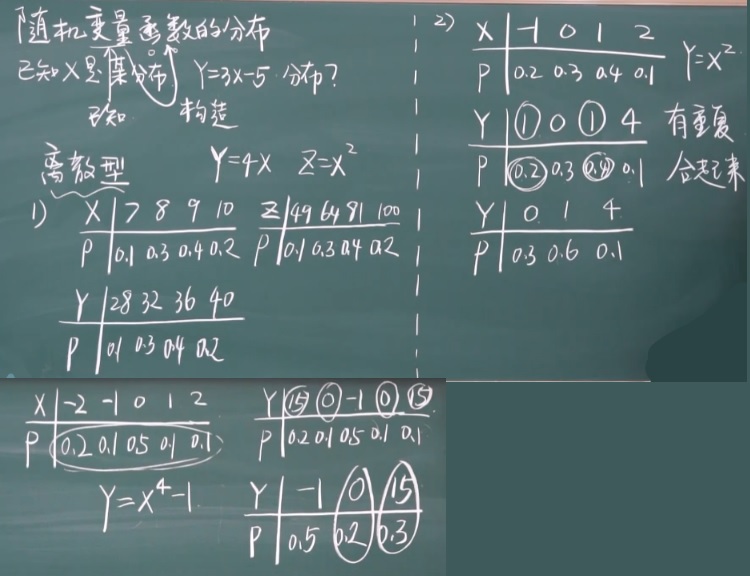 随机变量函数的分布
已知X是某分布 Y=3X-5 分布?
已知 构造
离散型 Y=4X Z=X²
1) X 7 8 9 10
P 0.1 0.3 0.4 0.2
Z 49 64 81 100
P 0.1 0.3 0.4 0.2
Y 28 32 36 40
P 0.1 0.3 0.4 0.2
2) X -1 0 1 2
P 0.2 0.3 0.4 0.1
Y=X²
Y 1 0 1 4 有重复
P 0.2 0.3 0.4 0.1 合起来
Y 0 1 4
P 0.3 0.6 0.1
X -2 -1 0 1 2
P 0.2 0.1 0.5 0.1 0.1
Y 15 0 -1 0 15
P 0.2 0.1 0.5 0.1 0.1
Y=X⁴-1
Y -1 0 15
P 0.5 0.2 0.3